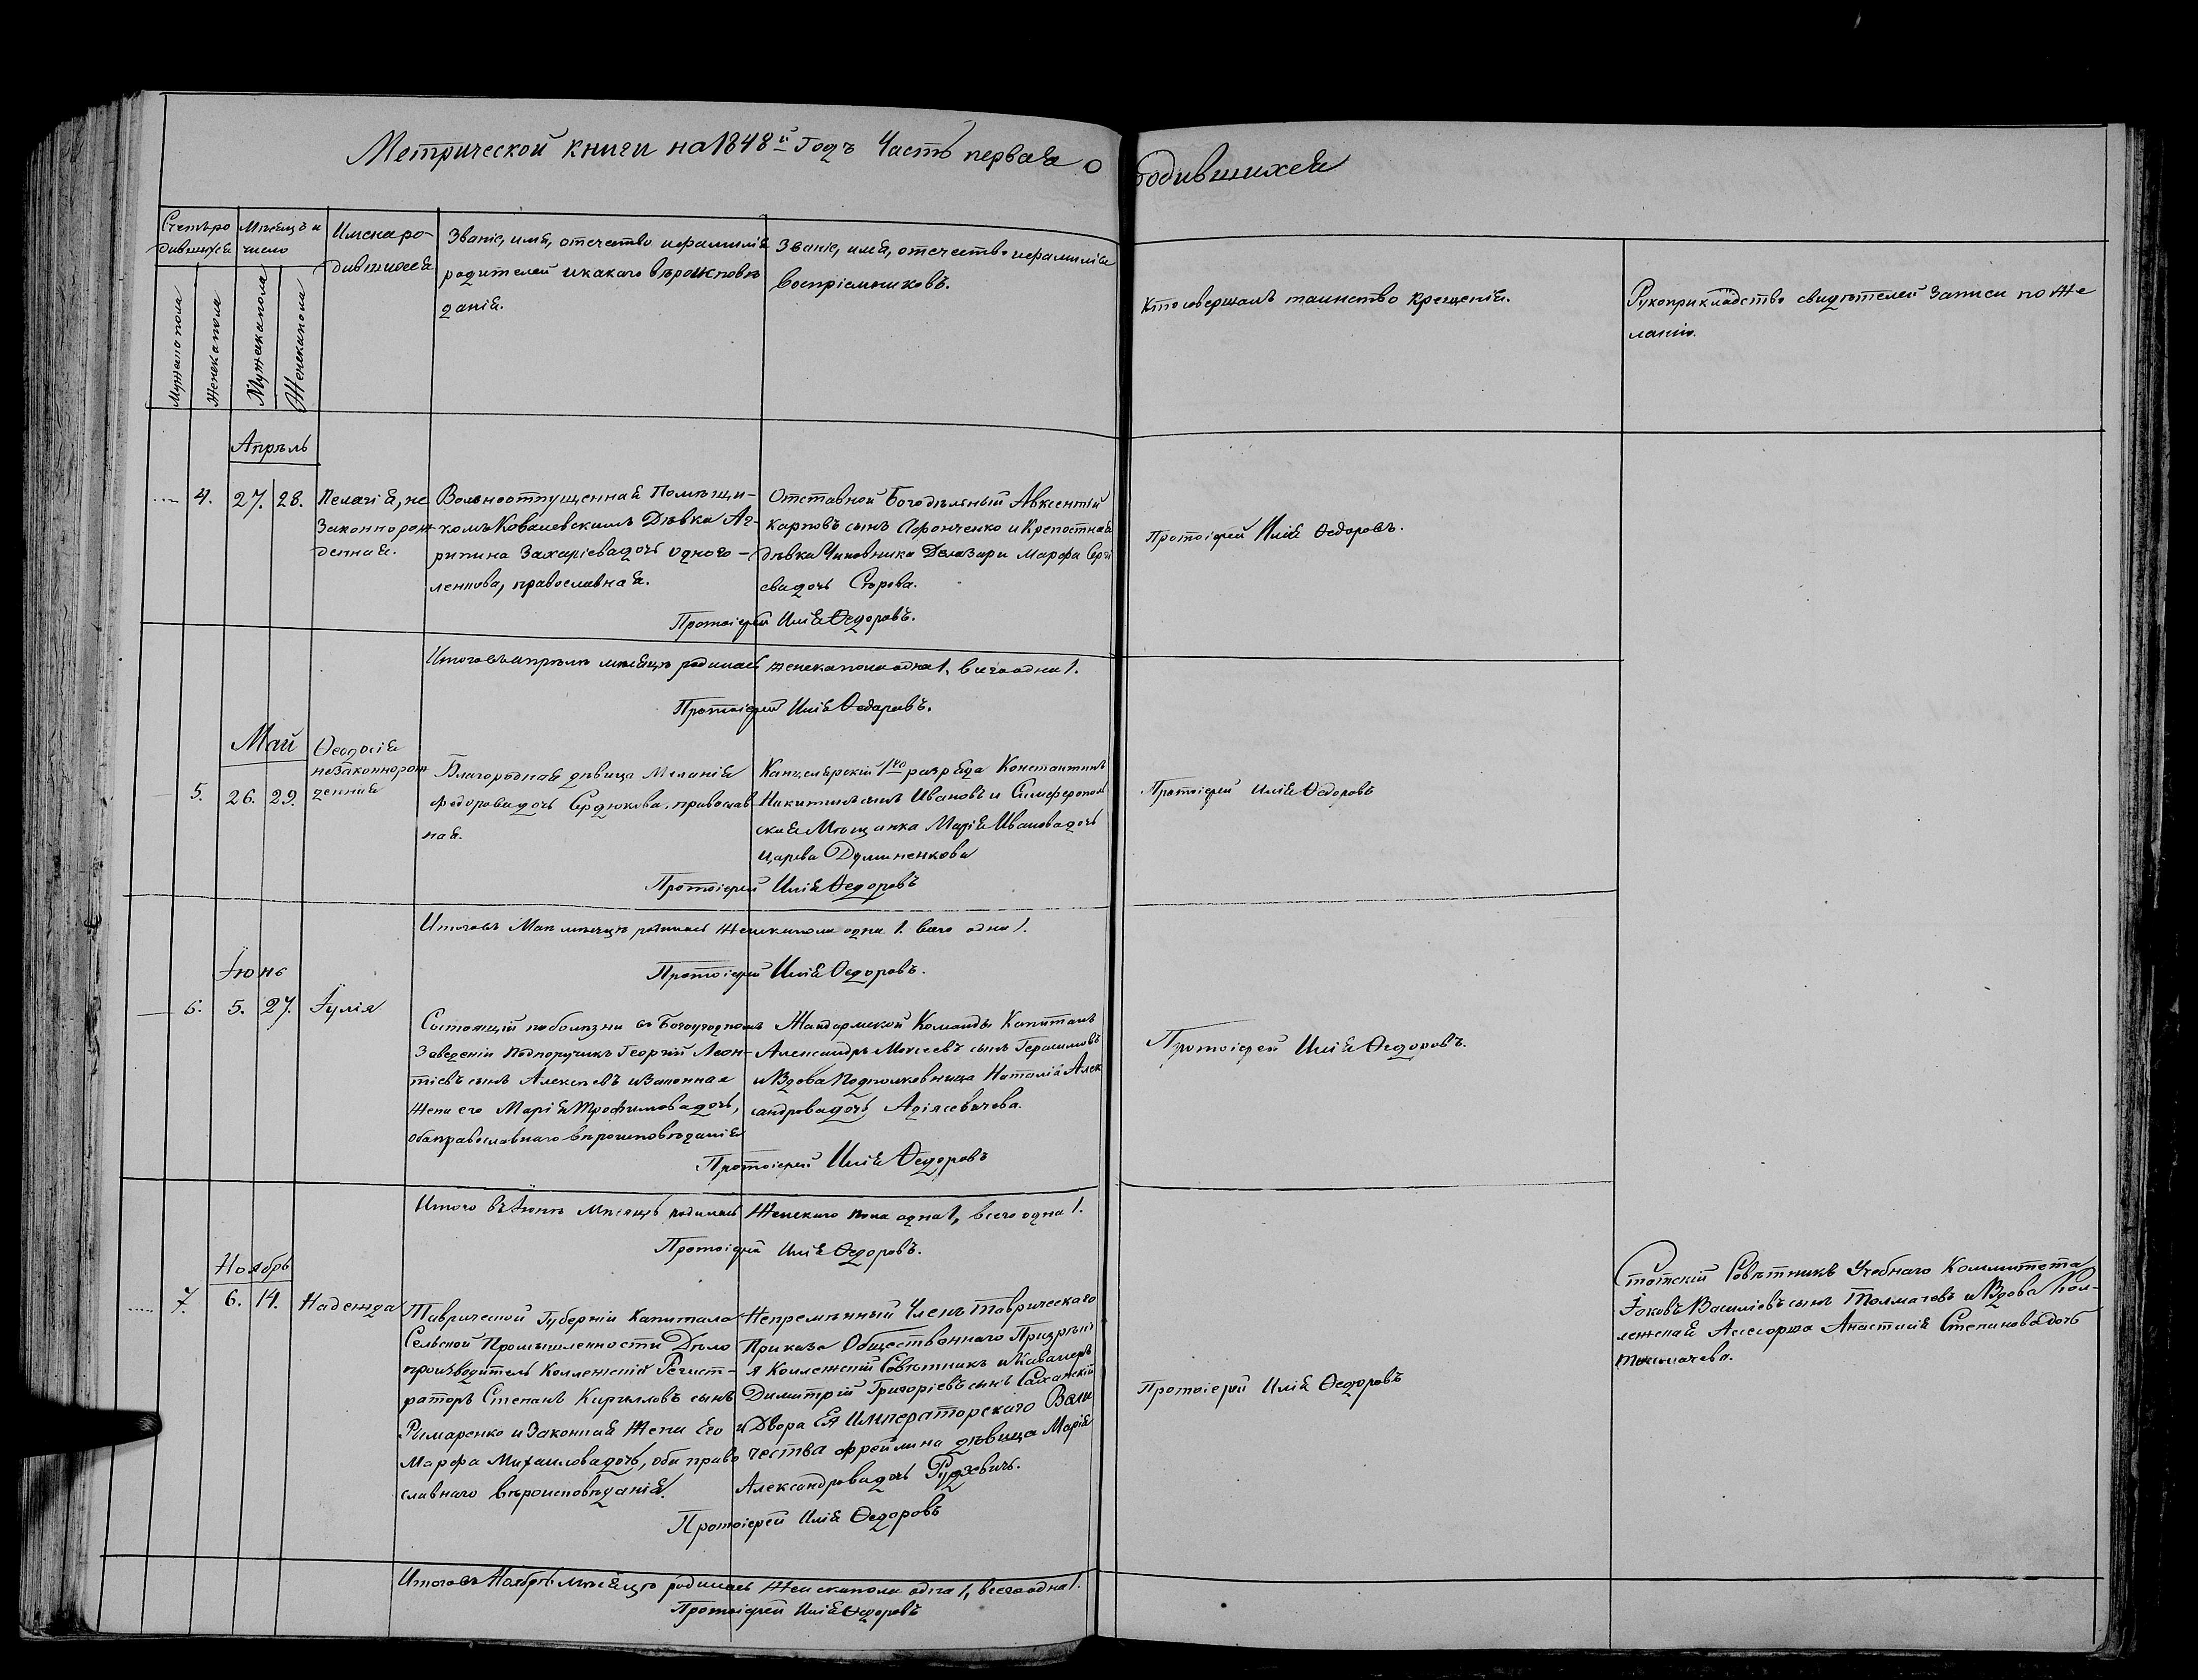 Метрической книги на 1848й Годъ Часть первая о родившихся
Счетъ ро
дившихся
Мужеска пола
Женска пола
Мѣсяцъ и
число
Мужеска пола
Женска пола
Имена ро-
дившихся
Званіе, имя, отечество и фамилія
родителей и какого вѣроисповѣ
данія.
Званіе, имя, отечество и фамилія
Воспріемниковъ.
Кто совершалъ таинство крещенія.
Рукоприкладство свидѣтелей Записи по же
ланію.
Апрѣль
4. 27. 28.
Пелагія, не
Законнорож
денная.
Вольноотпущенная Помѣщи-
комъ Ковалевскимъ Дѣвка Аг-
рипина Захаріева дочь Одного-
ленкова, православная.
Отставной Богодѣльный Авксентій
Карповъ сынъ Афонченко и Крепостная
дѣвка Чиновника Делазари Марфа Сергі
ева дочь Сѣрова.
Протоіерей Илія Ѳедоровъ.
Протоіерей Илія Ѳедоровъ.
Итого въ апрѣлѣ мѣсяцѣ родилась женска пола одна 1, всего одна 1.
Протоіерей Илія Ѳедоровъ.
Май
5. 26. 29.
Ѳеодосія
незаконнорож
денная
Благородная дѣвица Меланія
Федорова дочь Сердюкова, православ
ная.
Канцелярскій 1го разряда Константинъ
Никитинъ сынъ Ивановъ и Симферополь
ская Мѣщанка Марія Иванова дочь
Царева Думненкова
Протоіерей Илія Ѳедоровъ
Протоіерей Илія Ѳедоровъ
Итого въ Маѣ мѣсяцѣ родилась Женска пола одна 1. всего одна 1.
Протоіерей Илія Ѳедоровъ.
Іюнь
6. 5. 27. Іулія
Состоящій по болѣзни въ Богоугодномъ
Заведеніи Подпоручикъ Георгій Леон-
тіевъ сынъ Алексеевъ и Законная
Жена его Марія Трофимова дочь,
оба православнаго вѣроисповѣданія
Жандармской Команды Капитанъ
Александръ Моисеевъ сынъ Герасимовъ
и Вдова Подполковница Наталія Алек
сандрова дочь Адіясевичева.
Протоіерей Илія Ѳедоровъ
Протоіерей Илія Ѳедоровъ.
Итого въ Іюнѣ Мѣсяцѣ родилась Женскаго пола одна 1, всего одна 1.
Протоіерей Илія Ѳедоровъ.
Ноябрь
7. 6. 14. Надежда
Таврической Губерніи Капитала
Сельской Промышленности Дѣло
производитель Коллежскій Регист-
раторъ Степанъ Кирилловъ сынъ
Римаренко и Законная Жена Его
Марфа Михаилова дочь, оба право
славнаго вѣроисповѣданія.
Непремѣнный Членъ Таврическаго
Приказа Общественнаго Призрѣні
я Коллежскій Совѣтникъ и Кавалеръ
Димитрій Григоріевъ сынъ Саханскій
и Двора Ея Императорскаго Вели
чества фрейлина дѣвица Марія
Александрова дочь Рудзевичъ.
Протоіерей Илія Ѳедоровъ
Протоіерей Илія Ѳедоровъ
Статскій Совѣтникъ Учебнаго Коммитета
Іаковъ Василіевъ сынъ Толмачевъ и Вдова Кол-
лежская Ассесорша Анастасія Степанова дочь
Толмачева.
Итого въ Ноябрѣ мѣсяцѣ родилась Женска пола одна 1, всего одна 1.
Протоіерей Илія Ѳедоровъ